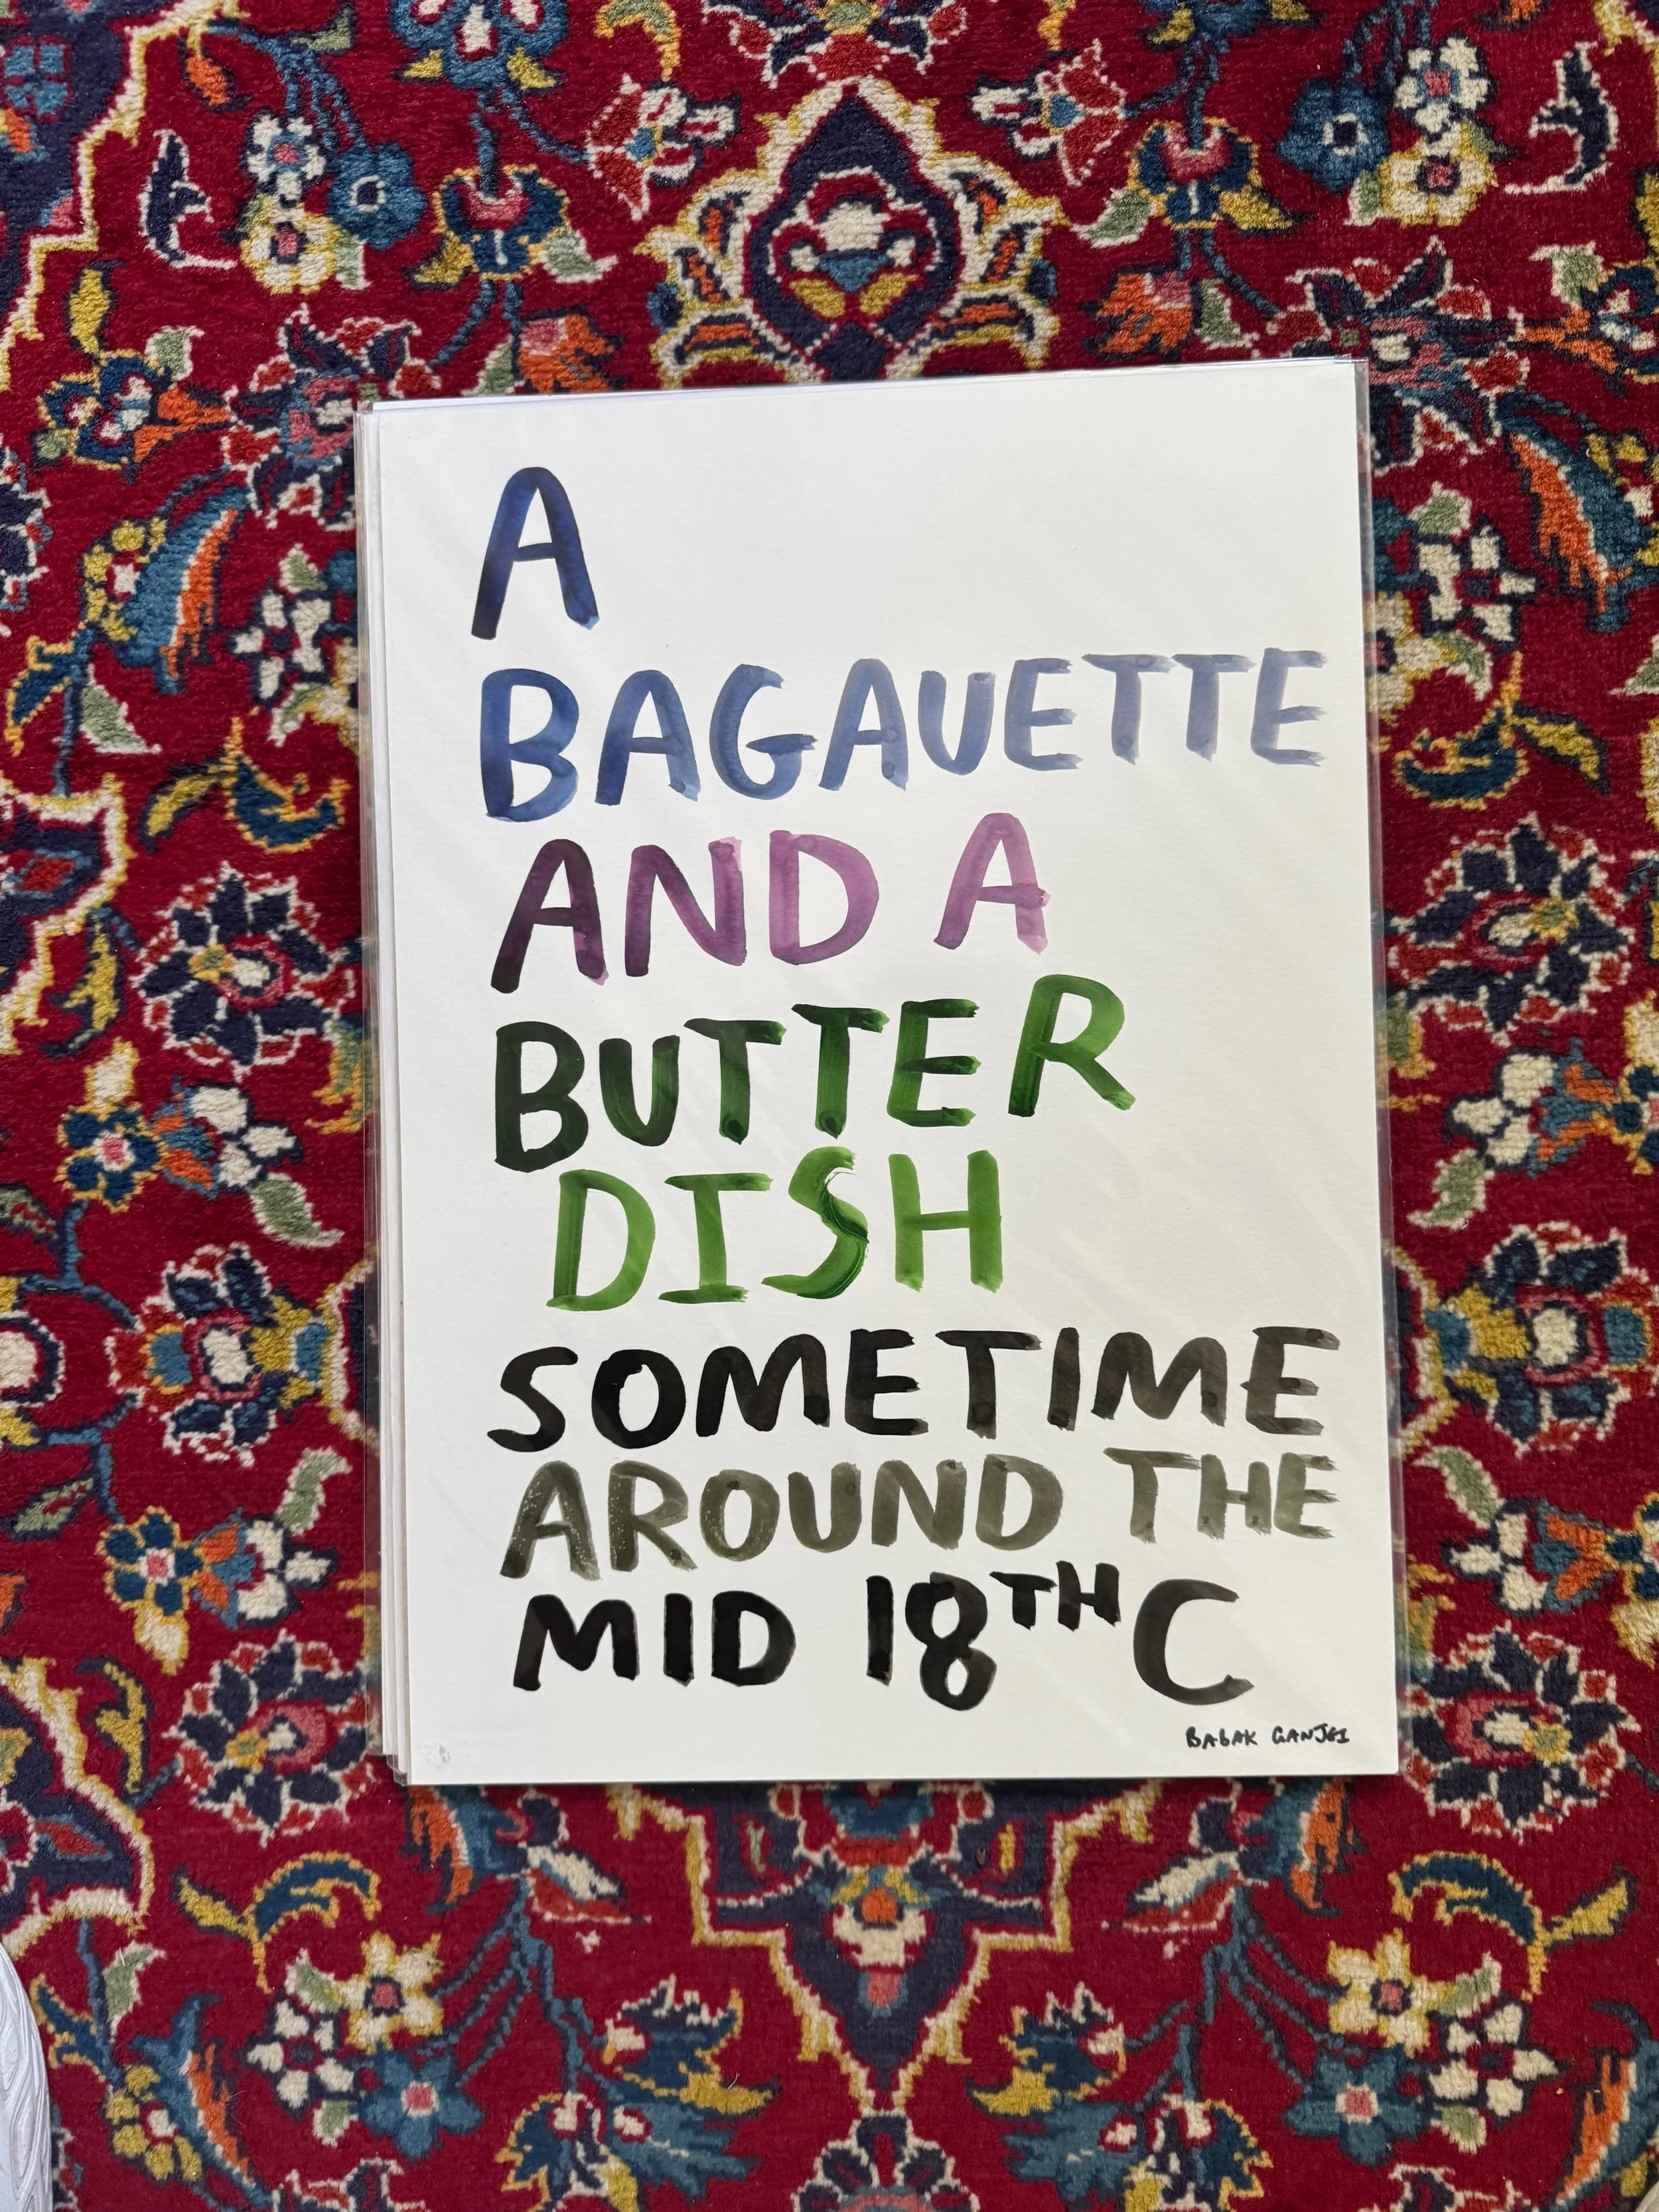 A
BAGAUETTE
AND A
BUTTER
DISH
SOMETIME
AROUND THE
MID 18TH C
BABAK GANJEI